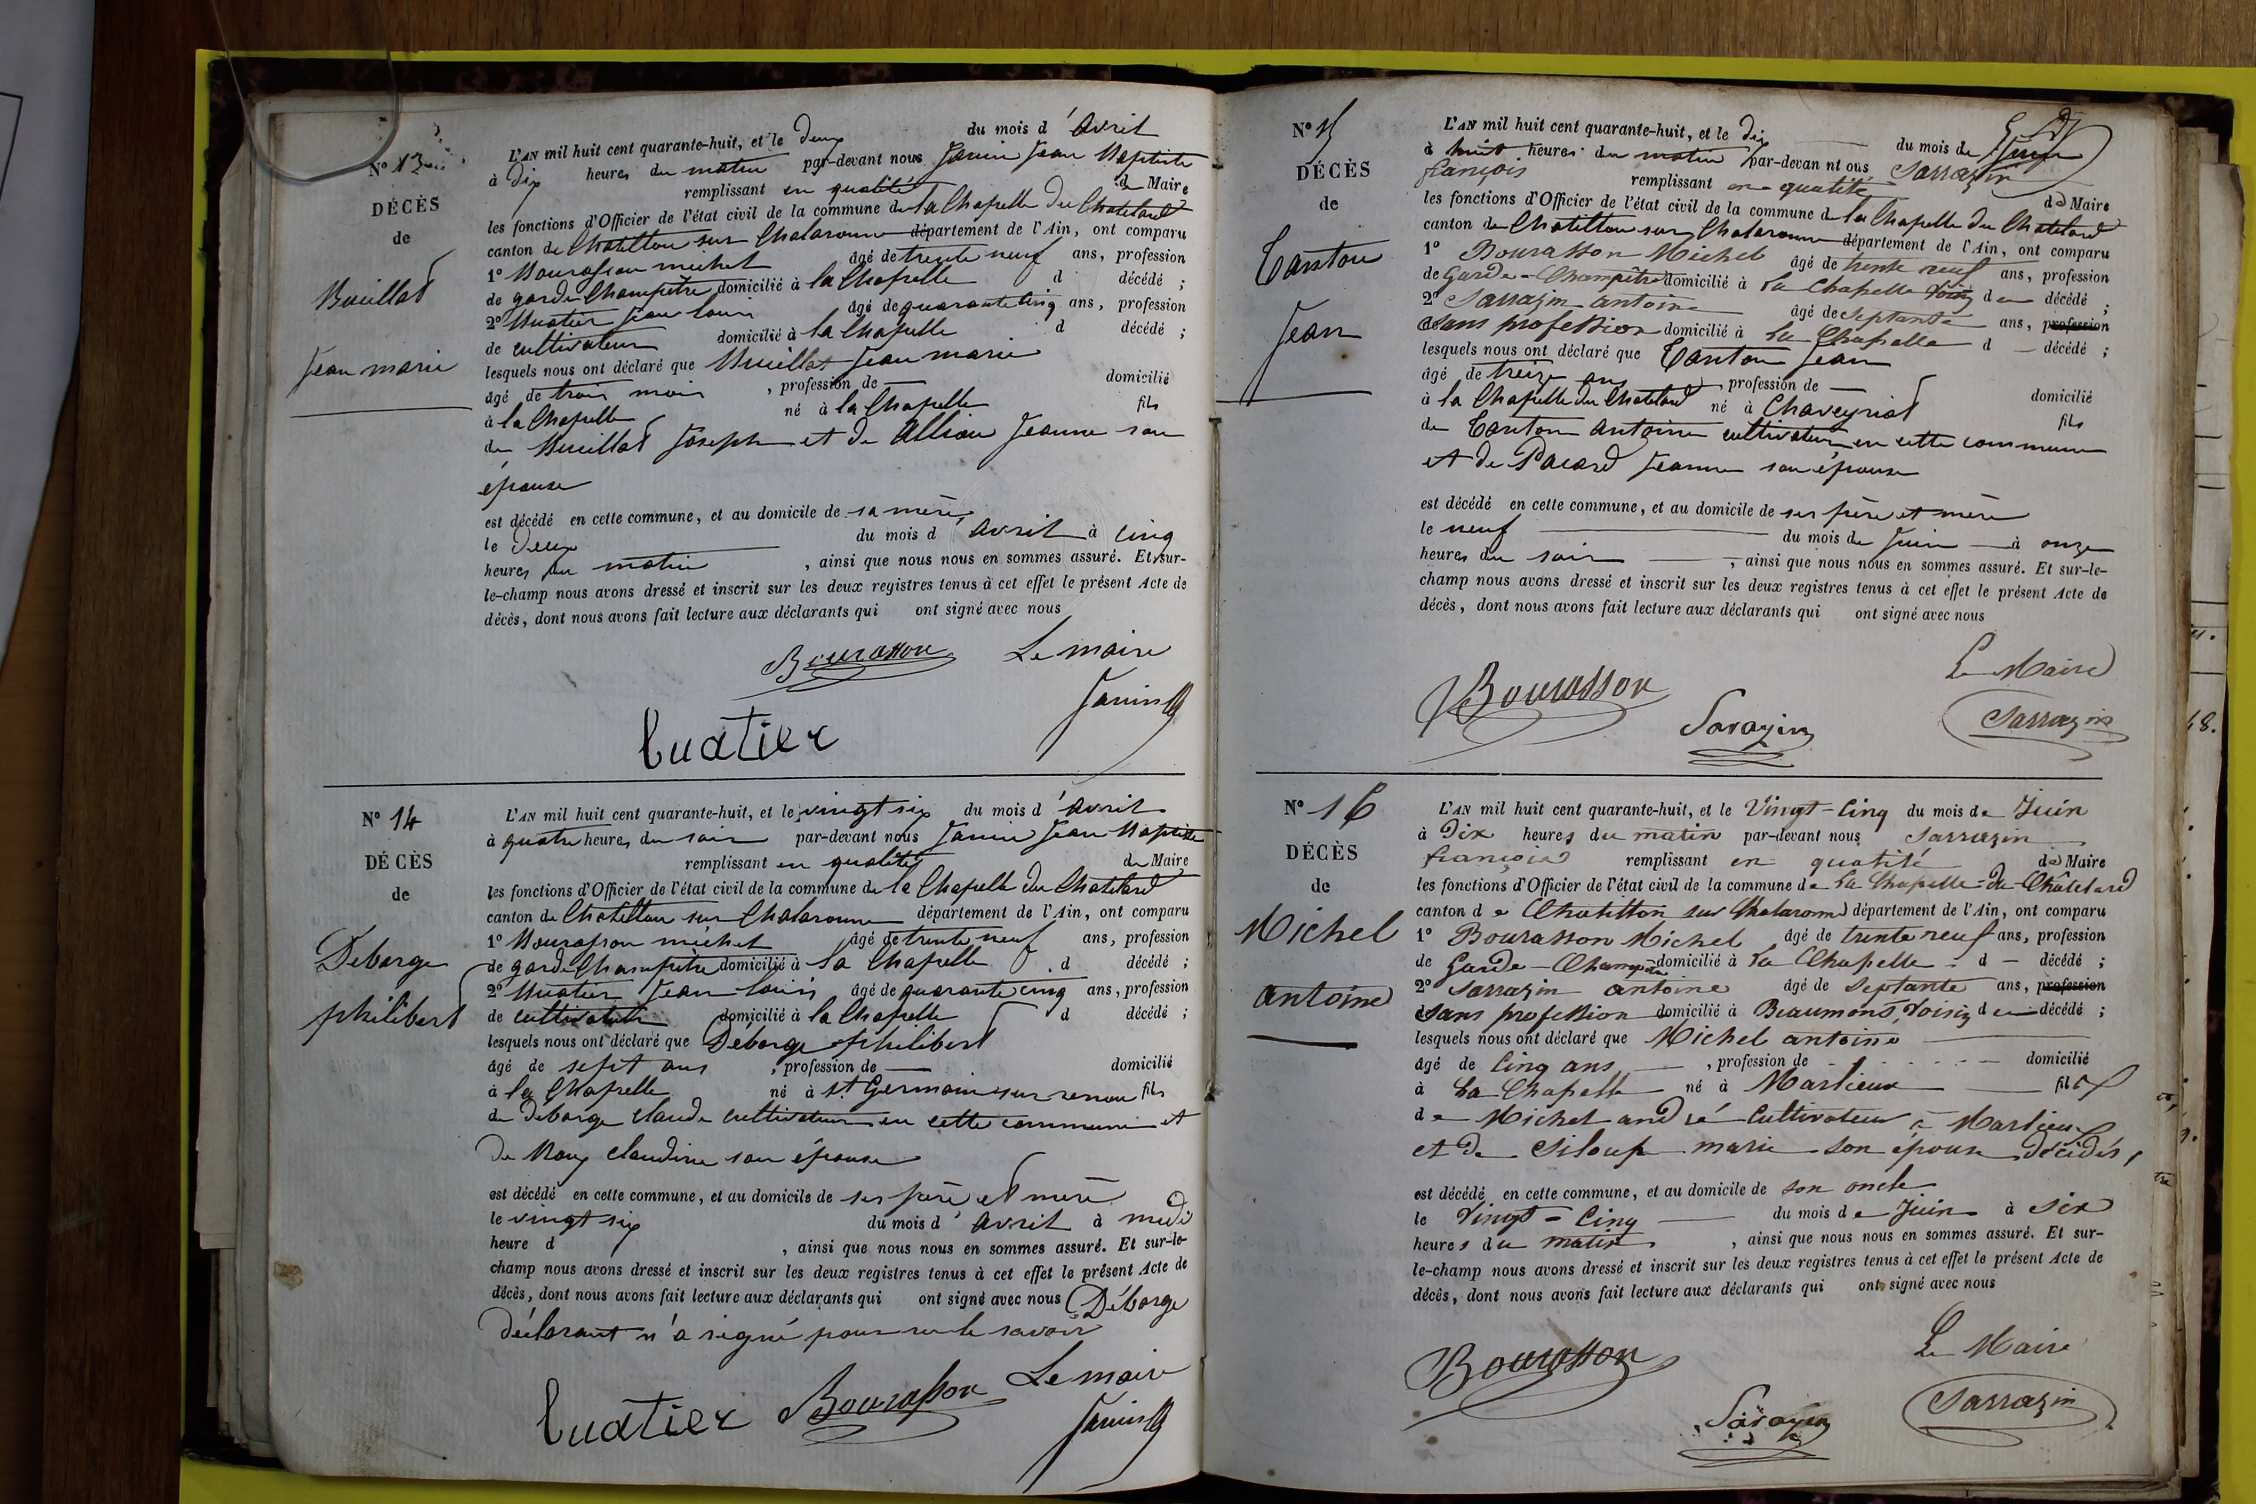 N° 13
DÉCÈS
de
Buillat
Jean marie
L'AN mil huit cent quarante-huit, et le deux du mois d'avril
à dix heures du matin par-devant nous Janin Jean Baptiste
remplissant en qualité de Maire
les fonctions d'Officier de l'état civil de la commune de la Chapelle du Chatelard
canton de Chatillon sur Chalaronne département de l'Ain, ont comparu
1° Bourasson michel âgé de trente neuf ans, profession
de garde Champêtre domicilié à la Chapelle d décédé ;
2° Buatier Jean louis âgé de quarante cinq ans, profession
de cultivateur domicilié à la Chapelle d décédé ;
lesquels nous ont déclaré que Buillat Jean marie
âgé de trois mois , profession de — domicilié
à la Chapelle né à la Chapelle fils
de Buillat Joseph et de Jeanne son
épouse
est décédé en cette commune, et au domicile de sa mère,
le deux du mois d avril à cinq
heures du matin , ainsi que nous nous en sommes assuré. Et sur-
le-champ nous avons dressé et inscrit sur les deux registres tenus à cet effet le présent Acte de
décès, dont nous avons fait lecture aux déclarants qui ont signé avec nous
Bourasson Le maire
Janin
Buatier
N° 14
DÉCÈS
de
Deborge
philibert
L'AN mil huit cent quarante-huit, et le vingt six du mois d'avril
à quatre heures du soir par-devant nous Janin Jean Baptiste
remplissant en qualité de Maire
les fonctions d'Officier de l'état civil de la commune de la Chapelle du Chatelard
canton de Chatillon sur Chalaronne département de l'Ain, ont comparu
1° Bourasson michel âgé de trente neuf ans, profession
de garde Champêtre domicilié à la Chapelle d décédé ;
2° Buatier Jean louis âgé de quarante cinq ans, profession
de cultivateur domicilié à la Chapelle d décédé ;
lesquels nous ont déclaré que Déborge philibert
âgé de sept ans , profession de — domicilié
à la Chapelle né à St. Germain sur renon fils
de Deborge claude cultivateur en cette commune et
de claudine son épouse
est décédé en cette commune, et au domicile de ses père et mère
le vingt six du mois d'avril à midi
heure d , ainsi que nous nous en sommes assuré. Et sur-le-
champ nous avons dressé et inscrit sur les deux registres tenus à cet effet le présent Acte de
décès, dont nous avons fait lecture aux déclarants qui ont signé avec nous Déborge
déclarant n'a signé pour ne le savoir
Buatier Bourasson Le maire
Janin
N° 15
DÉCÈS
de
Canton
Jean
L'AN mil huit cent quarante-huit, et le dix du mois de Juin
à huit heures du matin par-devan nt ous Sarrazin
françois remplissant en qualité de Maire
les fonctions d'Officier de l'état civil de la commune de la Chapelle du Chatelard
canton de Chatillon sur Chalaronne département de l'Ain, ont comparu
1° Bourasson Michel âgé de trente neuf ans, profession
de Garde-Champêtre domicilié à La Chapelle Voisin du décédé ;
2° Sarrazin antoine âgé de septante ans, profession
sans profession domicilié à La Chapelle d — décédé ;
lesquels nous ont déclaré que Canton Jean
âgé de treize ans profession de — domicilié
à la Chapelle du Chatelard né à Chaveyriat fils
de Canton Antoine cultivateur en cette commune
et de Pacard Jeanne son épouse
est décédé en cette commune, et au domicile de ses père et mère
le neuf du mois de Juin à onze
heures du soir , ainsi que nous nous en sommes assuré. Et sur-le-
champ nous avons dressé et inscrit sur les deux registres tenus à cet effet le présent Acte de
décès, dont nous avons fait lecture aux déclarants qui ont signé avec nous
Le Maire
Bourasson Sarazin Sarrazin
N° 16
DÉCÈS
de
Michel
antoine
L'AN mil huit cent quarante-huit, et le Vingt-Cinq du mois de Juin
à Dix heures du matin par-devant nous Sarrazin
françois remplissant en qualité de Maire
les fonctions d'Officier de l'état civil de la commune de La Chapelle-du-Châtelard
canton de Chatillon sur Chalaronne département de l'Ain, ont comparu
1° Bourasson Michel âgé de trente neuf ans, profession
de Garde-Champêtre domicilié à La Chapelle d — décédé ;
2° Sarrazin antoine âgé de Septante ans, profession
sans profession domicilié à Beaumont, Voisin du décédé ;
lesquels nous ont déclaré que Michel antoine
âgé de Cinq ans , profession de domicilié
à La Chapelle né à Marlieux fils
de Michel andré Cultivateur à Marlieux
et de Siloup marie son épouse décédés,
est décédé en cette commune, et au domicile de son oncle
le Vingt-Cinq du mois de Juin à Six
heures du matin , ainsi que nous nous en sommes assuré. Et sur-
le-champ nous avons dressé et inscrit sur les deux registres tenus à cet effet le présent Acte de
décès, dont nous avons fait lecture aux déclarants qui ont signé avec nous
Le Maire
Bourasson Sarazin Sarrazin